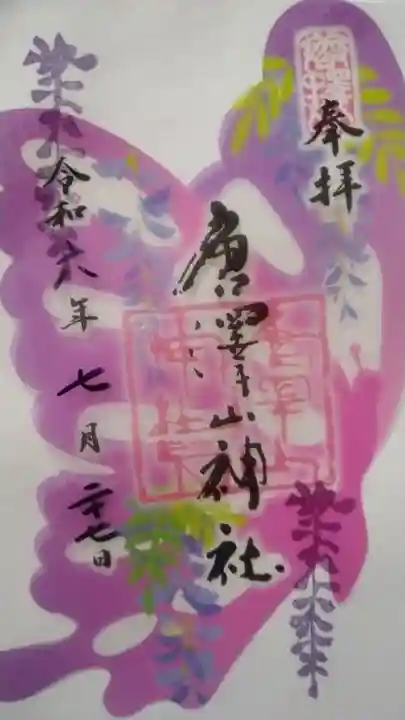 奉拝
唐澤山神社
令和六年
七月二十七日